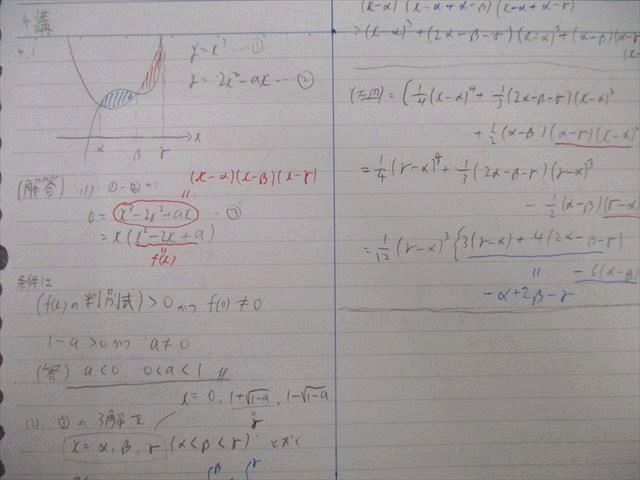 4講
4.1
y=x³ …①
y=2x²-ax …②
x
α β γ
(解答) (1) ①-②より
(x-α)(x-β)(x-γ)
0=x³-2x²+ax …③
=x(x²-2x+a)
f(x)
条件は
(f(x)の判別式)>0かつ f(0)≠0
1-a>0かつ a≠0
(答) a<0, 0<a<1 〃
x=0, 1+√1-a, 1-√1-a
γ
(2) ③の3解を
x=α, β, γ (α<β<γ) とおく
(x-α)(x-α+α-β)(x-α+α-γ)
=(x-α)³+(2α-β-γ)(x-α)²+(α-β)(α-γ)
(x-
(左辺)=[1/4(x-α)⁴+1/3(2α-β-γ)(x-α)³
+1/2(α-β)(α-γ)(x-α)²
=1/4(γ-α)⁴+1/3(2α-β-γ)(γ-α)³
-1/2(α-β)(γ-α)
=1/12(γ-α)³{3(γ-α)+4(2α-β-γ)
-6(α-β)
-α+2β-γ